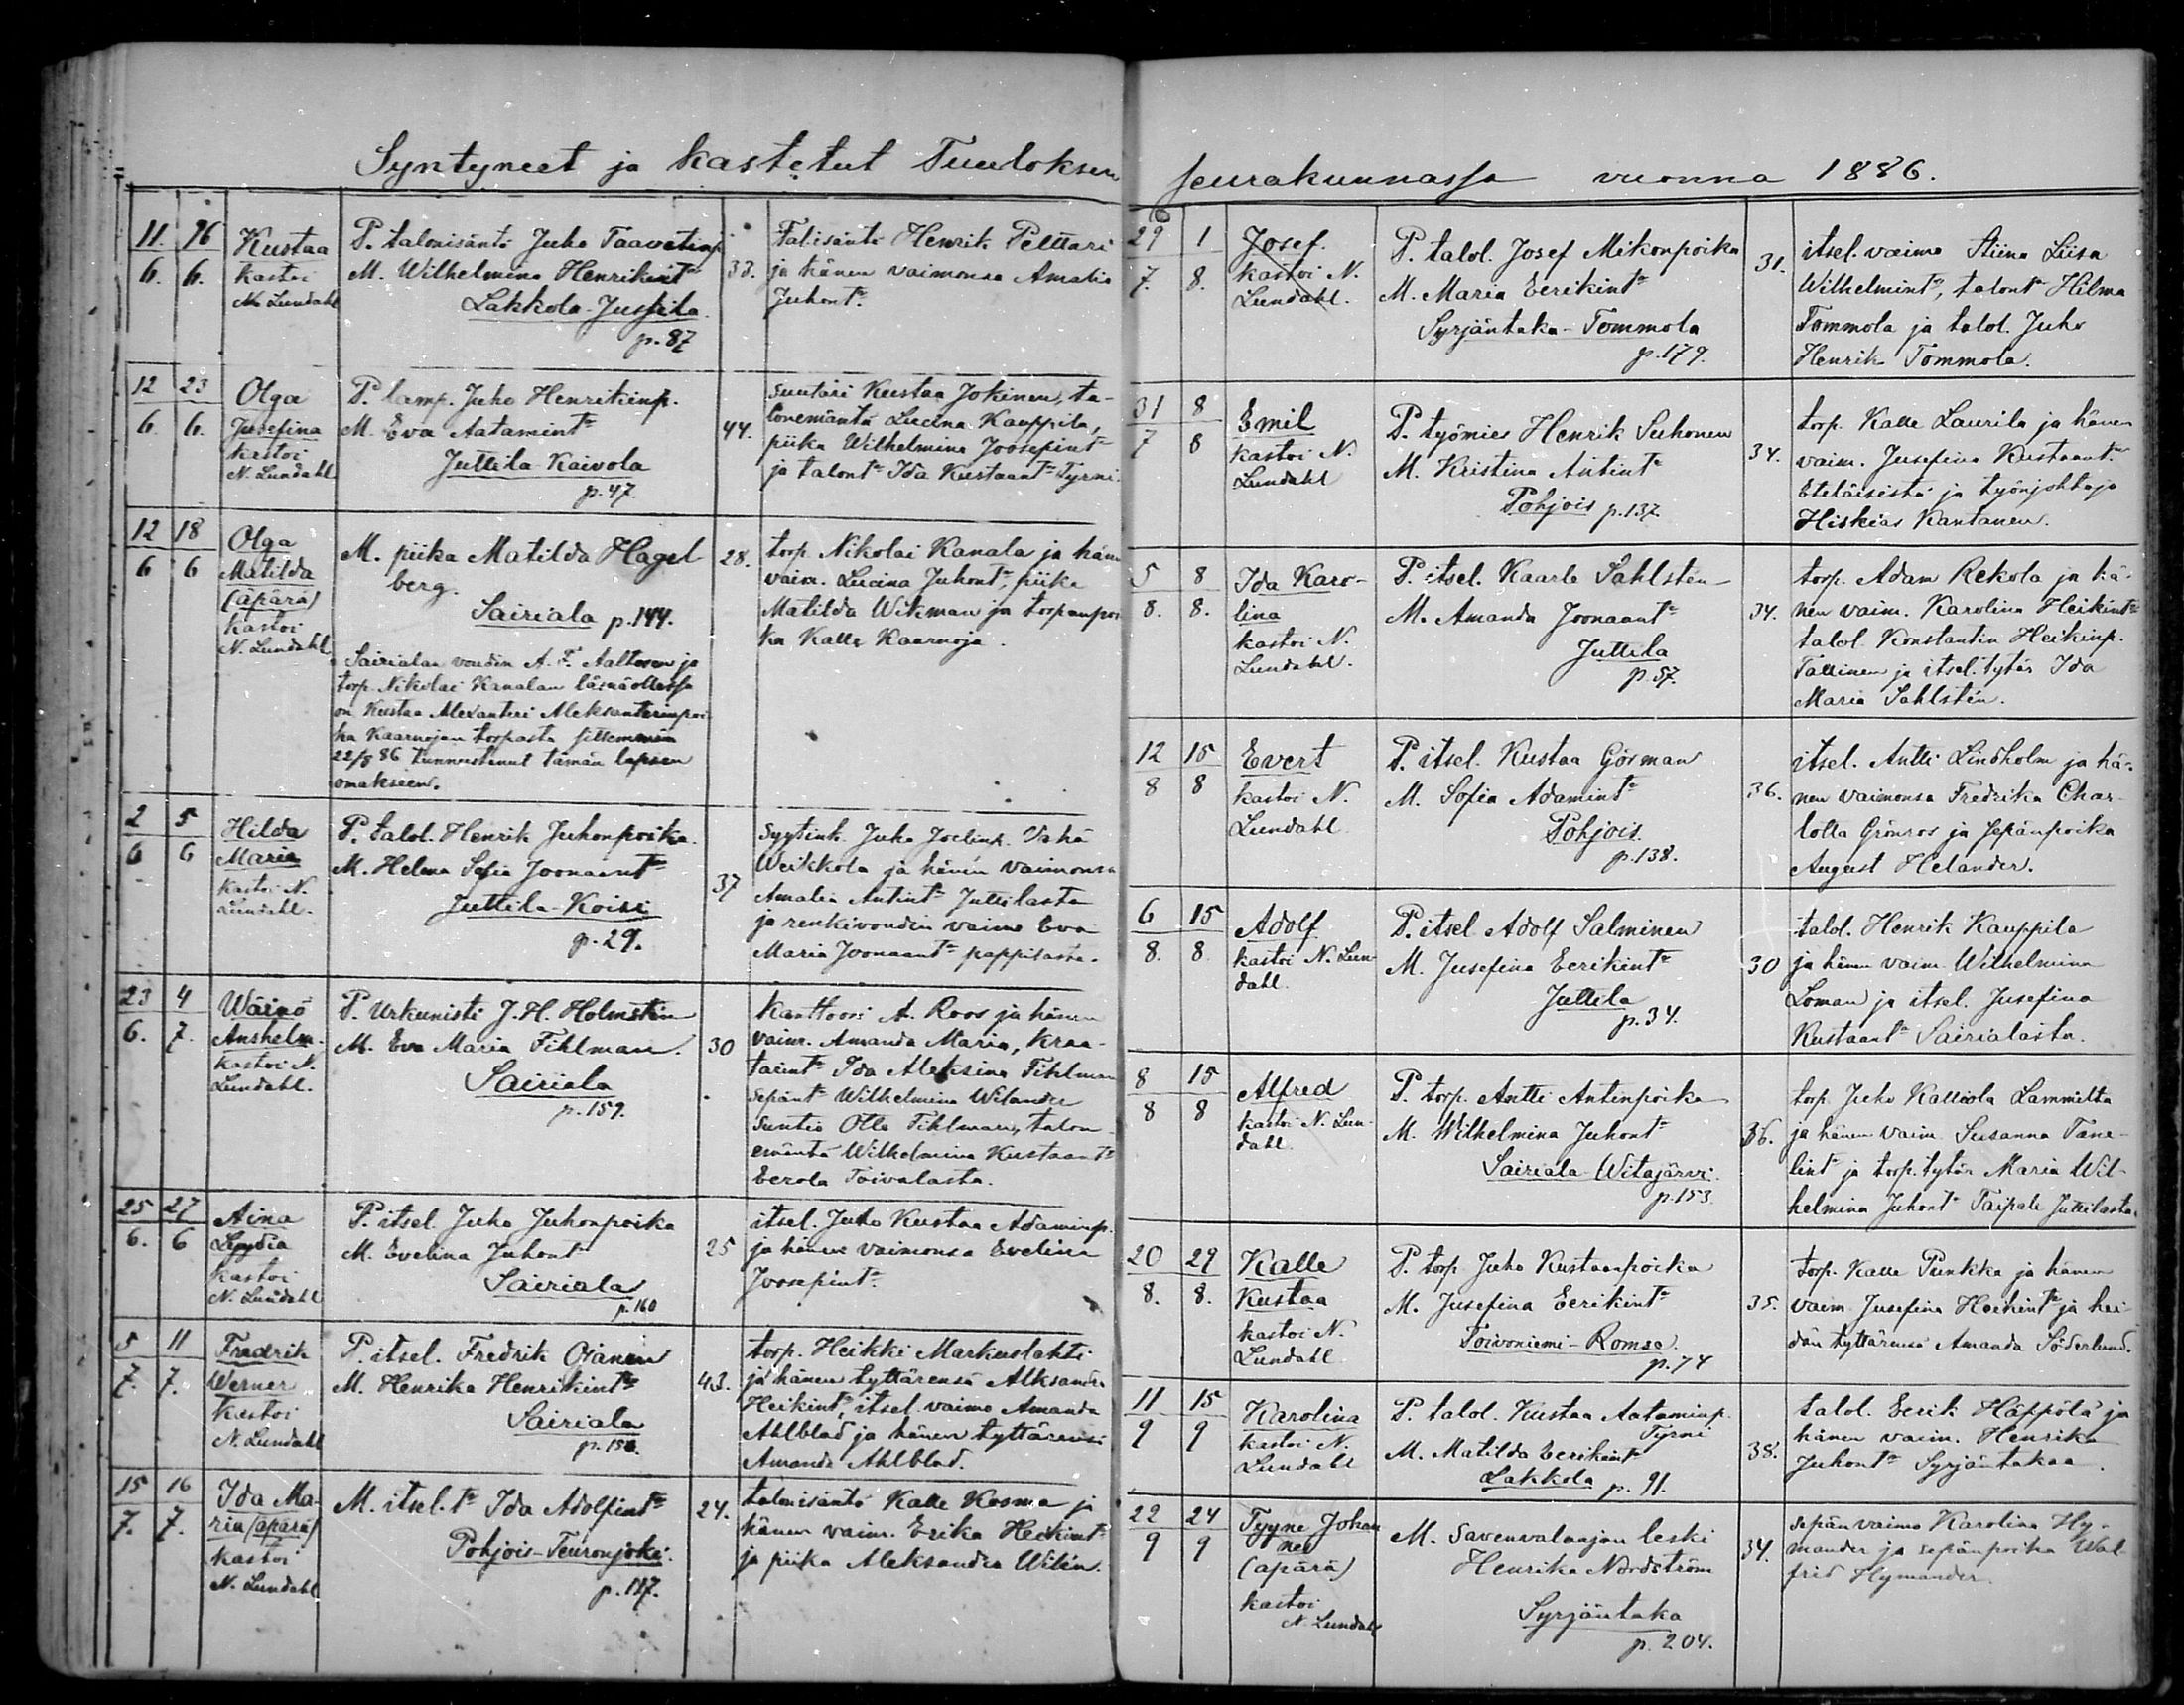 Syntyneet ja kastetut Tuuloksen
11. 16 Kustaa P. talonisäntä Juho Taavetinp. Tal.isäntä Henrik Pelttari
6. 6. kastoi M. Wilhelmina Henrikint. 33. ja hänen vaimonsa Amalia
N. Lundahl Lakkola-Jussila Juhont.
p. 87
12 23 Olga P. lamp. Juho Henrikinp. suutari Kustaa Jokinen, ta-
6. 6. Josefina M. Eva Aatamint. 44. lonemäntä Lucina Kauppila,
kastoi Juttila-Kaivola piika Wilhelmina Joosepint.
N. Lundahl p. 47. ja talont. Ida Kustaant. Tyrni.
12 18 Olga M. piika Matilda Hagel 28. torp. Nikolai Kanala ja hänen
6 6 Matilda berg. vaim. Lucina Juhont., piika
(äpärä) Sairiala p. 144. Matilda Wikman ja torpanpoi
kastoi ka Kalle Kaarnoja.
N. Lundahl
Sairialan voudin A. F. Aaltosen ja
torp. Nikolai Kanalan läsnäollessa
on Kustaa Alexanteri Aleksanterinpoi
ka Kaarnojan torpasta sittemmin
22/8 86 tunnustanut tämän lapsen
omakseen.
2 5 Hilda P. talol. Henrik Juhonpoika. syytink. Juho Joelinp. Vähä
6 6 Maria M. Helena Sofia Joonaant. 37 Weikkola ja hänen vaimonsa
kastoi N. Juttila-Koisi Amalia Antint. Juttilasta
Lundahl. p. 29. ja renkivoudin vaimo Eva
Maria Joonaant. pappilasta.
23 4 Wäinö P. Urkunisti J. H. Holmstén Kanttoori A. Roos ja hänen
6. 7. Anshelm. M. Eva Maria Tihlman. 30 vaim. Amanda Maria, Kraa-
kastoi N. Sairiala tarint. Ida Aleksina Tihlman
Lundahl. p. 159. sepänt. Wilhelmina Welander
suntio Otto Tihlman, talon
emäntä Wilhelmina Kustaant.
Eerola Toivalasta.
25 27 Aina P. itsel. Juho Juhonpoika itsel. Juho Kustaa Adaminp.
6. 6 Lyydia M. Evelina Juhont. 25 ja hänen vaimonsa Evelina
kastoi Sairiala Joosepint.
N. Lundahl p. 160
5 11 Fredrik P. itsel. Fredrik Ojanen torp. Heikki Markuslahti
7. 7. Werner M. Henrika Henrikint. 43. ja hänen tyttärensä Aleksandra
kastoi Sairiala Heikint., itsel. vaimo Amanda
N. Lundahl Ahlblad ja hänen tyttärensä
Amanda Ahlblad.
15 16 Ida Ma- M. itsel. t. Ida Adolfint. 24. talonisäntä Kalle Kosma ja
7. 7. ria (äpärä) Pohjois-Teuronjoki. hänen vaim. Erika Heikint.
kastoi p. 117. ja piika Aleksandra Wilén.
N. Lundahl
seurakunnassa vuonna 1886.
29 1 Josef. P. talol. Josef Mikonpoika 31. itsel. vaimo Stiina Liisa
7. 8. kastoi N. M. Maria Eerikint. Wilhelmint., talont. Hilma
Lundahl. Syrjäntaka-Tommola Tommola ja talol. Juho
p. 179. Henrik Tommola.
31 8 Emil P. työmies Henrik Suhonen torp. Kalle Laurila ja hänen
7 8 kastoi N. M. Kristina Antint. 34. vaim. Josefina Kustaant.
Lundahl Pohjois p. 137. Eteläisistä ja työnjohtaja
Hiskias Kantanen.
5 8 Ida Karo- P. itsel. Kaarle Sahlstén torp. Adam Rekola ja hä-
8. 8. lina M. Amanda Joonaant. 34. nen vaim. Karolina Heikint.
kastoi N. Juttila talol. Konstantin Heikinp.
Lundahl. p. 57. Tallinen ja itsel. tytär Ida
Maria Sahlstén.
12 15 Evert P. itsel. Kustaa Görman itsel. Antti Lindholm ja hä-
8 8 kastoi N. M. Sofia Adamint. 36. nen vaimonsa Fredrika Char-
Lundahl Pohjois. lotta Grönros ja sepänpoika
p. 138. August Helander.
6 15 Adolf P. itsel Adolf Salminen talol. Henrik Kauppila
8. 8 kastoi N. Lun M. Josefina Eerikint. 30 ja hänen vaim. Wilhelmina
dahl. Juttila Loman ja itsel. Josefina
p. 34. Kustaant. Sairialasta.
8 15 Alfred P. torp. Antti Antinpoika torp. Juho Kalliola Lammilta
8 8 kastoi N. Lun- M. Wilhelmina Juhont. 36. ja hänen vaim. Susanna Tane-
dahl. Sairiala-Witajärvi. lint. ja torp. tytär Maria Wil-
p. 153 helmina Juhont. Taipale Juttilasta.
20 29 Kalle P. torp. Juho Kustaanpoika torp. Kalle Punkka ja hänen
8. 8. Kustaa M. Josefina Eerikint. 35. vaim. Josefina Heikint. ja hei
kastoi N. Toivoniemi-Romse. dän tyttärensä Amanda Söderlund.
Lundahl p. 74
11 15 Karolina P. talol. Kustaa Aataminp. talol. Eerik Häppölä ja
9 9 kastoi N. Tyrni 38. hänen vaim. Henrika
Lundahl M. Matilda Eerikint. Juhont. Syrjäntakaa.
Lakkola p. 91.
22 24 Tyyne Johan M. Savenvalaajan leski sepän vaimo Karolina Hy-
9 9 nes Henrika Nordström 34. mander ja sepänpoika Wal
(äpärä) Syrjäntaka frid Hymander.
kastoi p. 204.
N. Lundahl